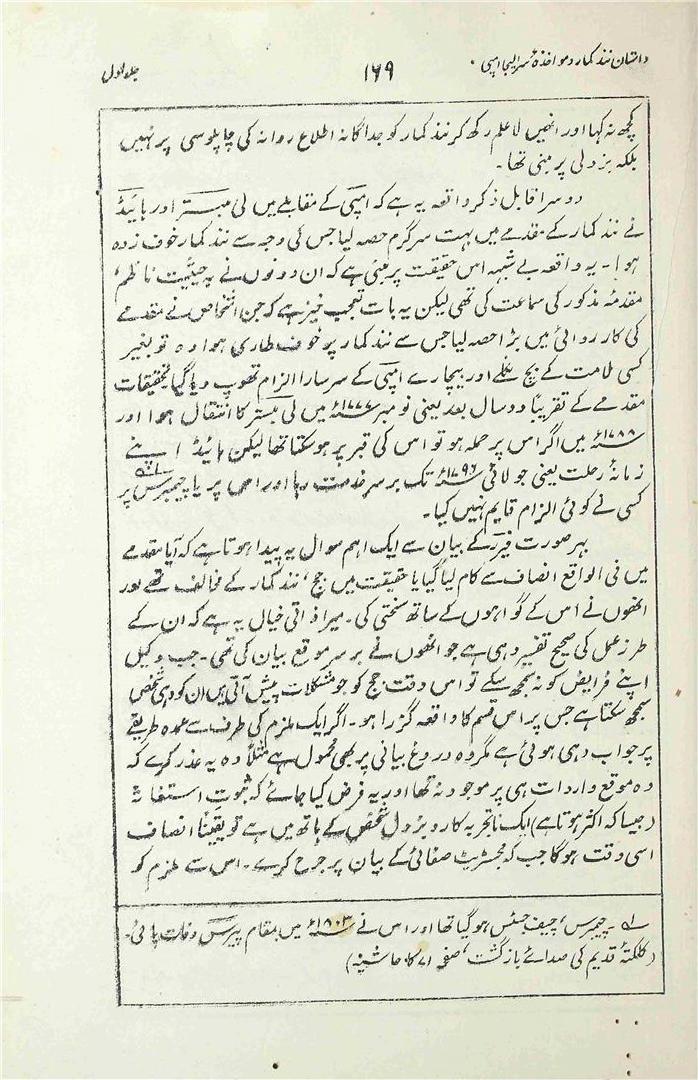 داستان نند کمار و مواخذۂ سر الیجا امپی
۱۶۹
جلد اول
کچھ نہ کہا اور انھیں لا علم رکھ کر نند کمار کو جداگانہ اطلاع روانہ کی چاپلوسی پر نہیں
بلکہ بزدلی پر مبنی تھا۔
دوسرا قابل ذکر واقعہ یہ ہے کہ امپی کے مقابلے میں لی میسٹر اور ہائیڈ
نے نند کمار کے مقدمے میں بہت سرگرم حصہ لیا جس کی وجہ سے نند کمار خوف زدہ
ہوا۔ یہ واقعہ بے شبہہ اس حقیقت پر مبنی ہے کہ ان دونوں نے بہ حیثیت ناظم
مقدمۂ مذکور کی سماعت کی تھی لیکن یہ بات تعجب خیز ہے کہ جن اشخاص نے مقدمے
کی کارروائی میں بڑا حصہ لیا جس سے نند کمار پر خوف طاری ہوا وہ تو بغیر
کسی ملامت کے بچ نکلے اور بیچارے امپی کے سر سارا الزام تھوپ دیا گیا تحقیقات
مقدمے کے تقریباً دو سال بعد یعنی نومبر ۱۷۷۷ء میں لی میسٹر کا انتقال ہوا اور
۱۷۸۸ء میں اگر اس پر حملہ ہو تو اس کی قبر پر ہوسکتا تھا لیکن ہائیڈ اپنے
زمانۂ رحلت یعنی جولائی ۱۷۹۶ء تک برسر خدمت رہا اور اس پر یا چیمبرس پر
کسی نے کوئی الزام قایم نہیں کیا۔
بہر صورت فیرر کے بیان سے ایک اہم سوال یہ پیدا ہوتا ہے کہ آیا مقدمے
میں فی الواقع انصاف سے کام لیا گیا یا حقیقت میں جج، نند کمار کے مخالف تھے اور
انھوں نے اس کے گواہوں کے ساتھ سختی کی۔ میرا ذاتی خیال یہ ہے کہ ان کے
طرز عمل کی صحیح تفسیر وہی ہے جو انھوں نے برسر موقع بیان کی تھی۔ جب وکیل
اپنے فرایض کو نہ سمجھ سکے تو اس وقت جج کو جو مشکلات پیش آتی ہیں ان کو وہی شخص
سمجھ سکتا ہے جس پر اس قسم کا واقعہ گزرا ہو۔ اگر ایک ملزم کی طرف سے عمدہ طریقے
پر جواب دہی ہوئی ہے مگر وہ دروغ بیانی پر بھی محمول ہے مثلاً وہ یہ عذر کرے کہ
وہ موقع واردات ہی پر موجود نہ تھا اور یہ فرض کیا جائے کہ ثبوت استغاثہ
(جیسا کہ اکثر ہوتا ہے) ایک نا تجربہ کار و بزدل شخص کے ہاتھ میں ہے تو یقیناً انصاف
اسی وقت ہوگا جب کہ مجسٹریٹ صفائی کے بیان پر جرح کرے۔ اس سے ملزم کو
لہ۔ چیمبرس، چیف جسٹس ہو گیا تھا اور اس نے ۱۸۰۳ء میں بمقام پیرس وفات پائی۔
(کلکتۂ قدیم کی صدائے بازگشت، صفحہ ۷۱ کا حاشیہ)